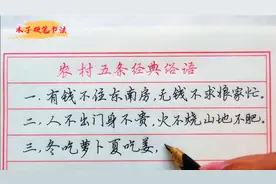 木子硬笔书法
农村五条经典俗语
一.有钱不住东南房,无钱不求娘家忙.
二.人不出门身不贵,火不烧山地不肥.
三.冬吃萝卜夏吃姜,